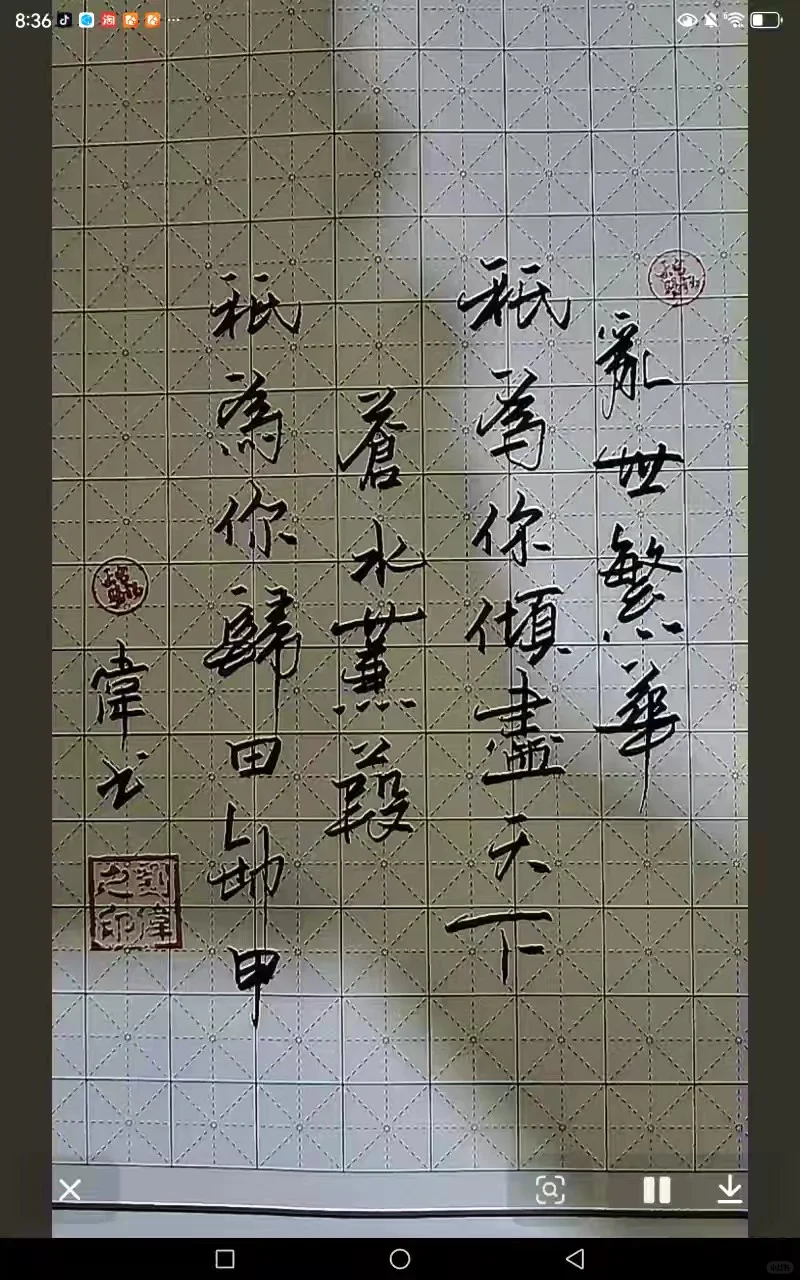 8:36
亂世繁華
秖為你傾盡天下
蒼水蒹葭
秖為你歸田卸甲
偉书
劉偉之印